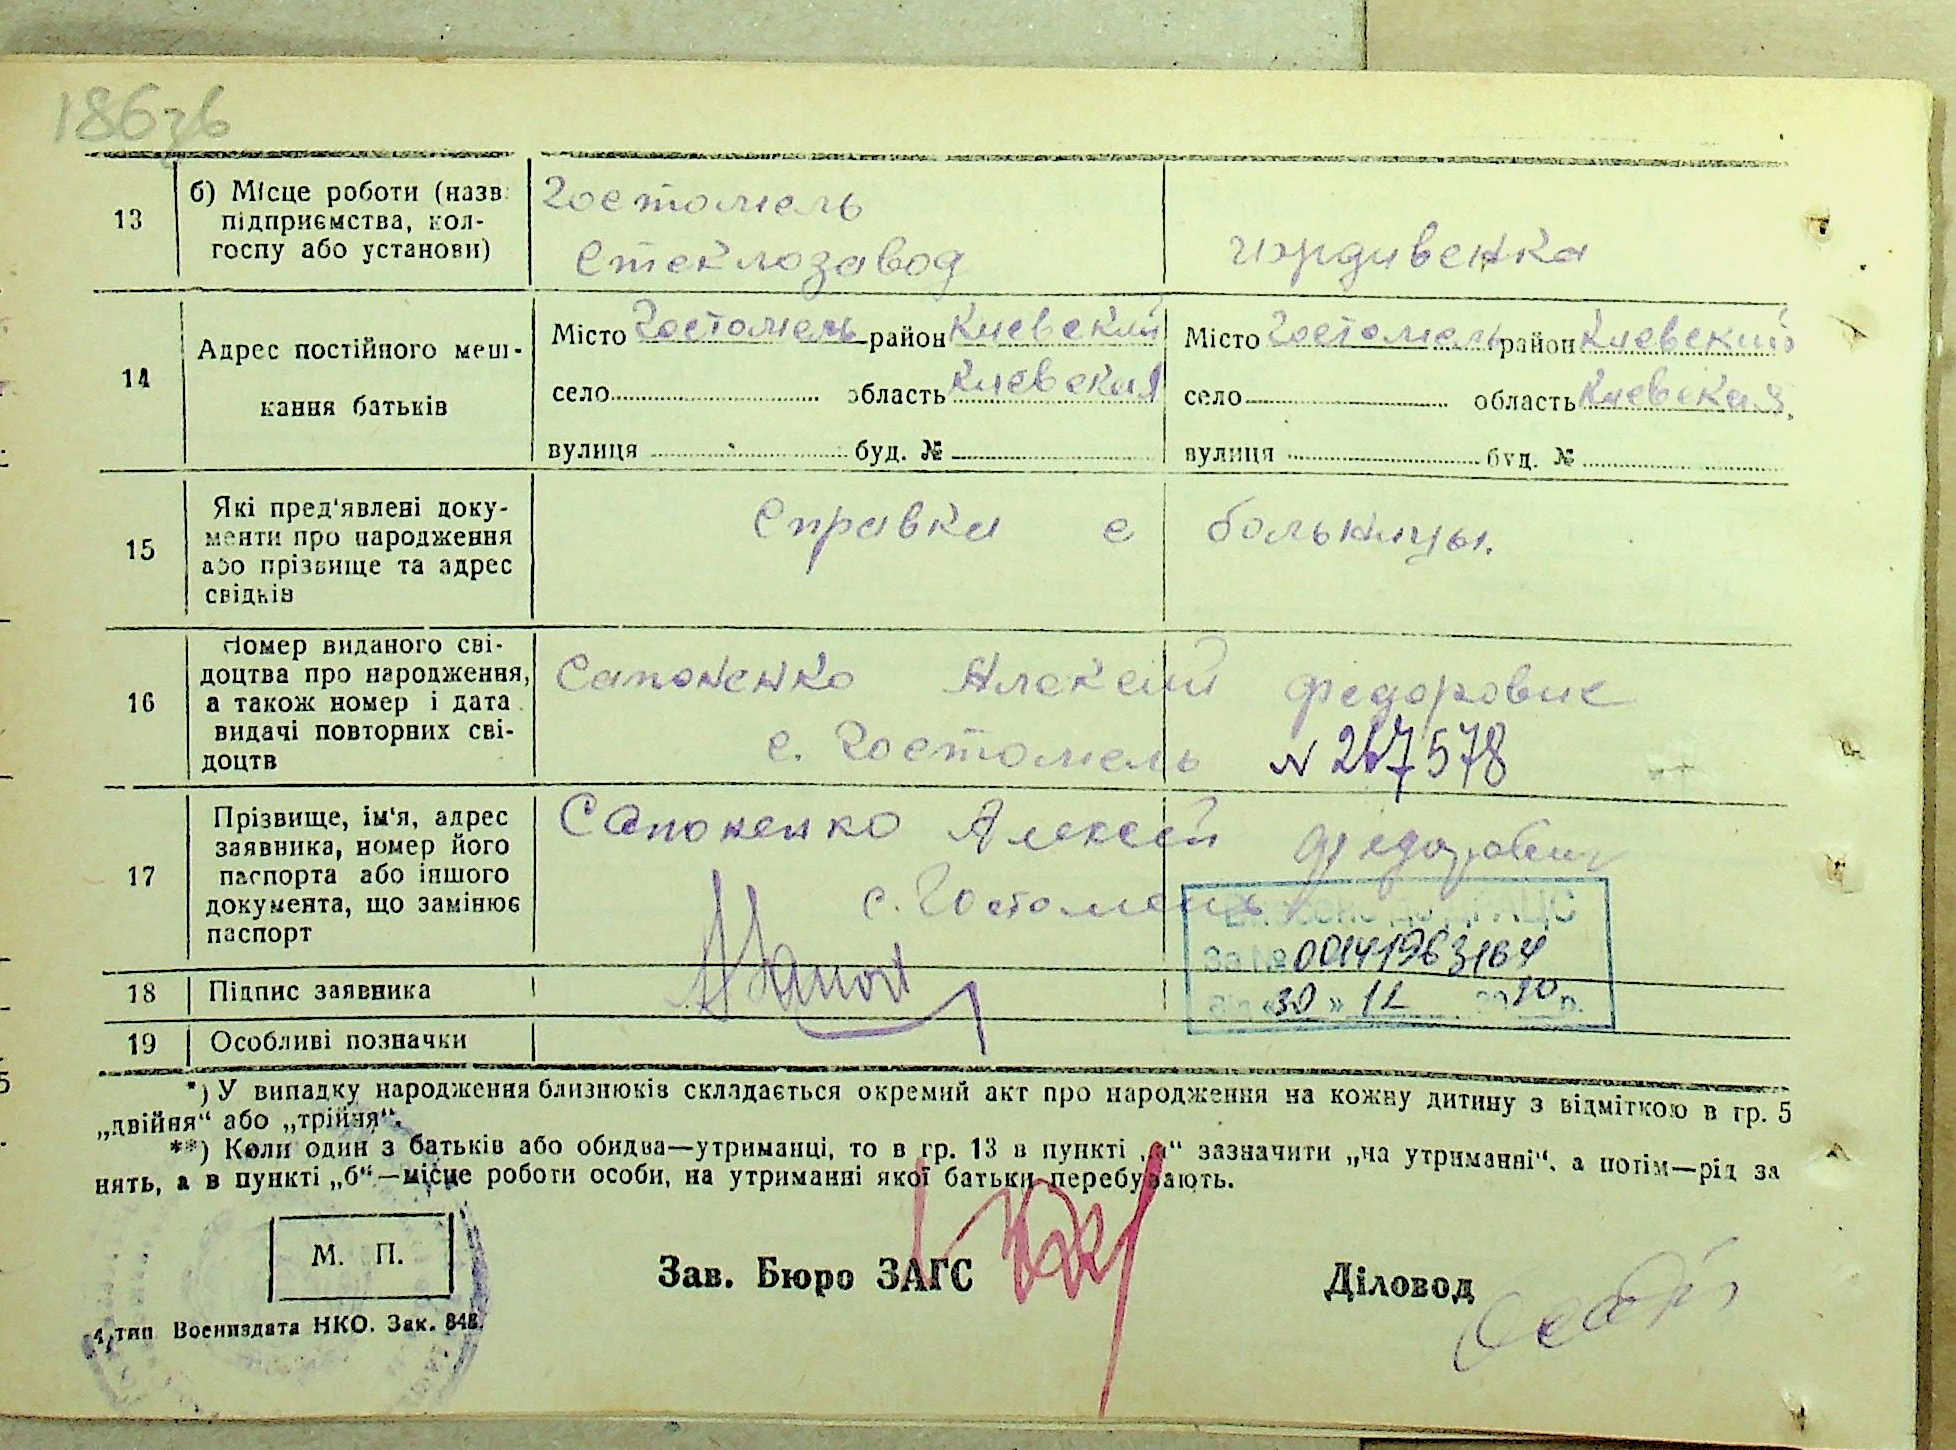 186зв
13
б) Місце роботи (назв.
підприємства, кол-
госпу або установи)
Гостомель
Стеклозавод
иждивенка
14
Адрес постійного меш-
кання батьків
Місто Гостомель район Киевский
село область Киевская
вулиця буд. №
Місто Гостомель район Киевский
село область Киевская.
вулиця буд. №
15
Які пред'явлені доку-
менти про народження
або прізвище та адрес
свідків
Справка с больницы.
16
Номер виданого сві-
доцтва про народження,
а також номер і дата
видачі повторних сві-
доцтв
Сапоненко Алексей Федорович
с. Гостомель N 267578
17
Прізвище, ім'я, адрес
заявника, номер його
паспорта або іншого
документа, що замінює
паспорт
Сапоненко Алексей Федорович
с. Гостомель
00141963164
18
Підпис заявника
«30» 12 2020 р.
19
Особливі позначки
*) У випадку народження близнюків складається окремий акт про народження на кожну дитину з відміткою в гр. 5
„двійня“ або „трійня“.
**) Коли один з батьків або обидва—утриманці, то в гр. 13 в пункті „а“ зазначити „на утриманні“, а потім—рід за
нять, а в пункті „б“—місце роботи особи, на утриманні якої батьки перебувають.
М. П.
Зав. Бюро ЗАГС
Діловод
4 тип Воениздата НКО. Зак. 848.